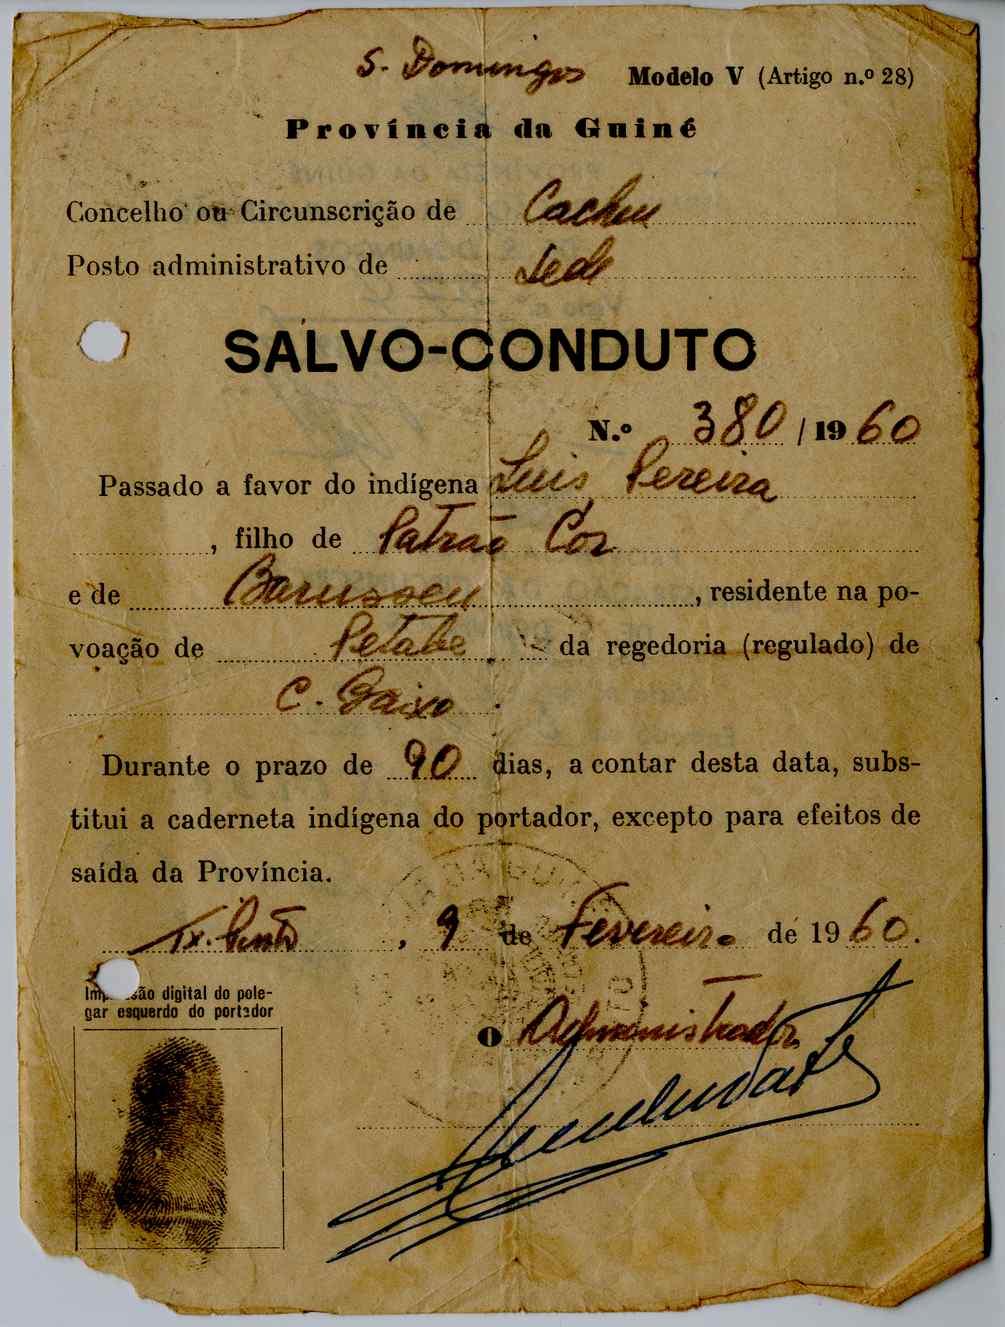 S. Domingos Modelo V (Artigo n.º 28)
Província da Guiné
Concelho ou Circunscrição de Cacheu
Posto administrativo de Sede
SALVO-CONDUTO
N.º 380/1960
Passado a favor do indígena Luis Pereira
, filho de Patrão Cor
e de Barusseu, residente na po-
voação de Petabe da regedoria (regulado) de
C. Baixo.
Durante o prazo de 90 dias, a contar desta data, subs-
titui a caderneta indígena do portador, excepto para efeitos de
saída da Província.
Tx. Pinto, 9 de Fevereiro de 1960.
Impressão digital do pole-
gar esquerdo do portador
O Administrador